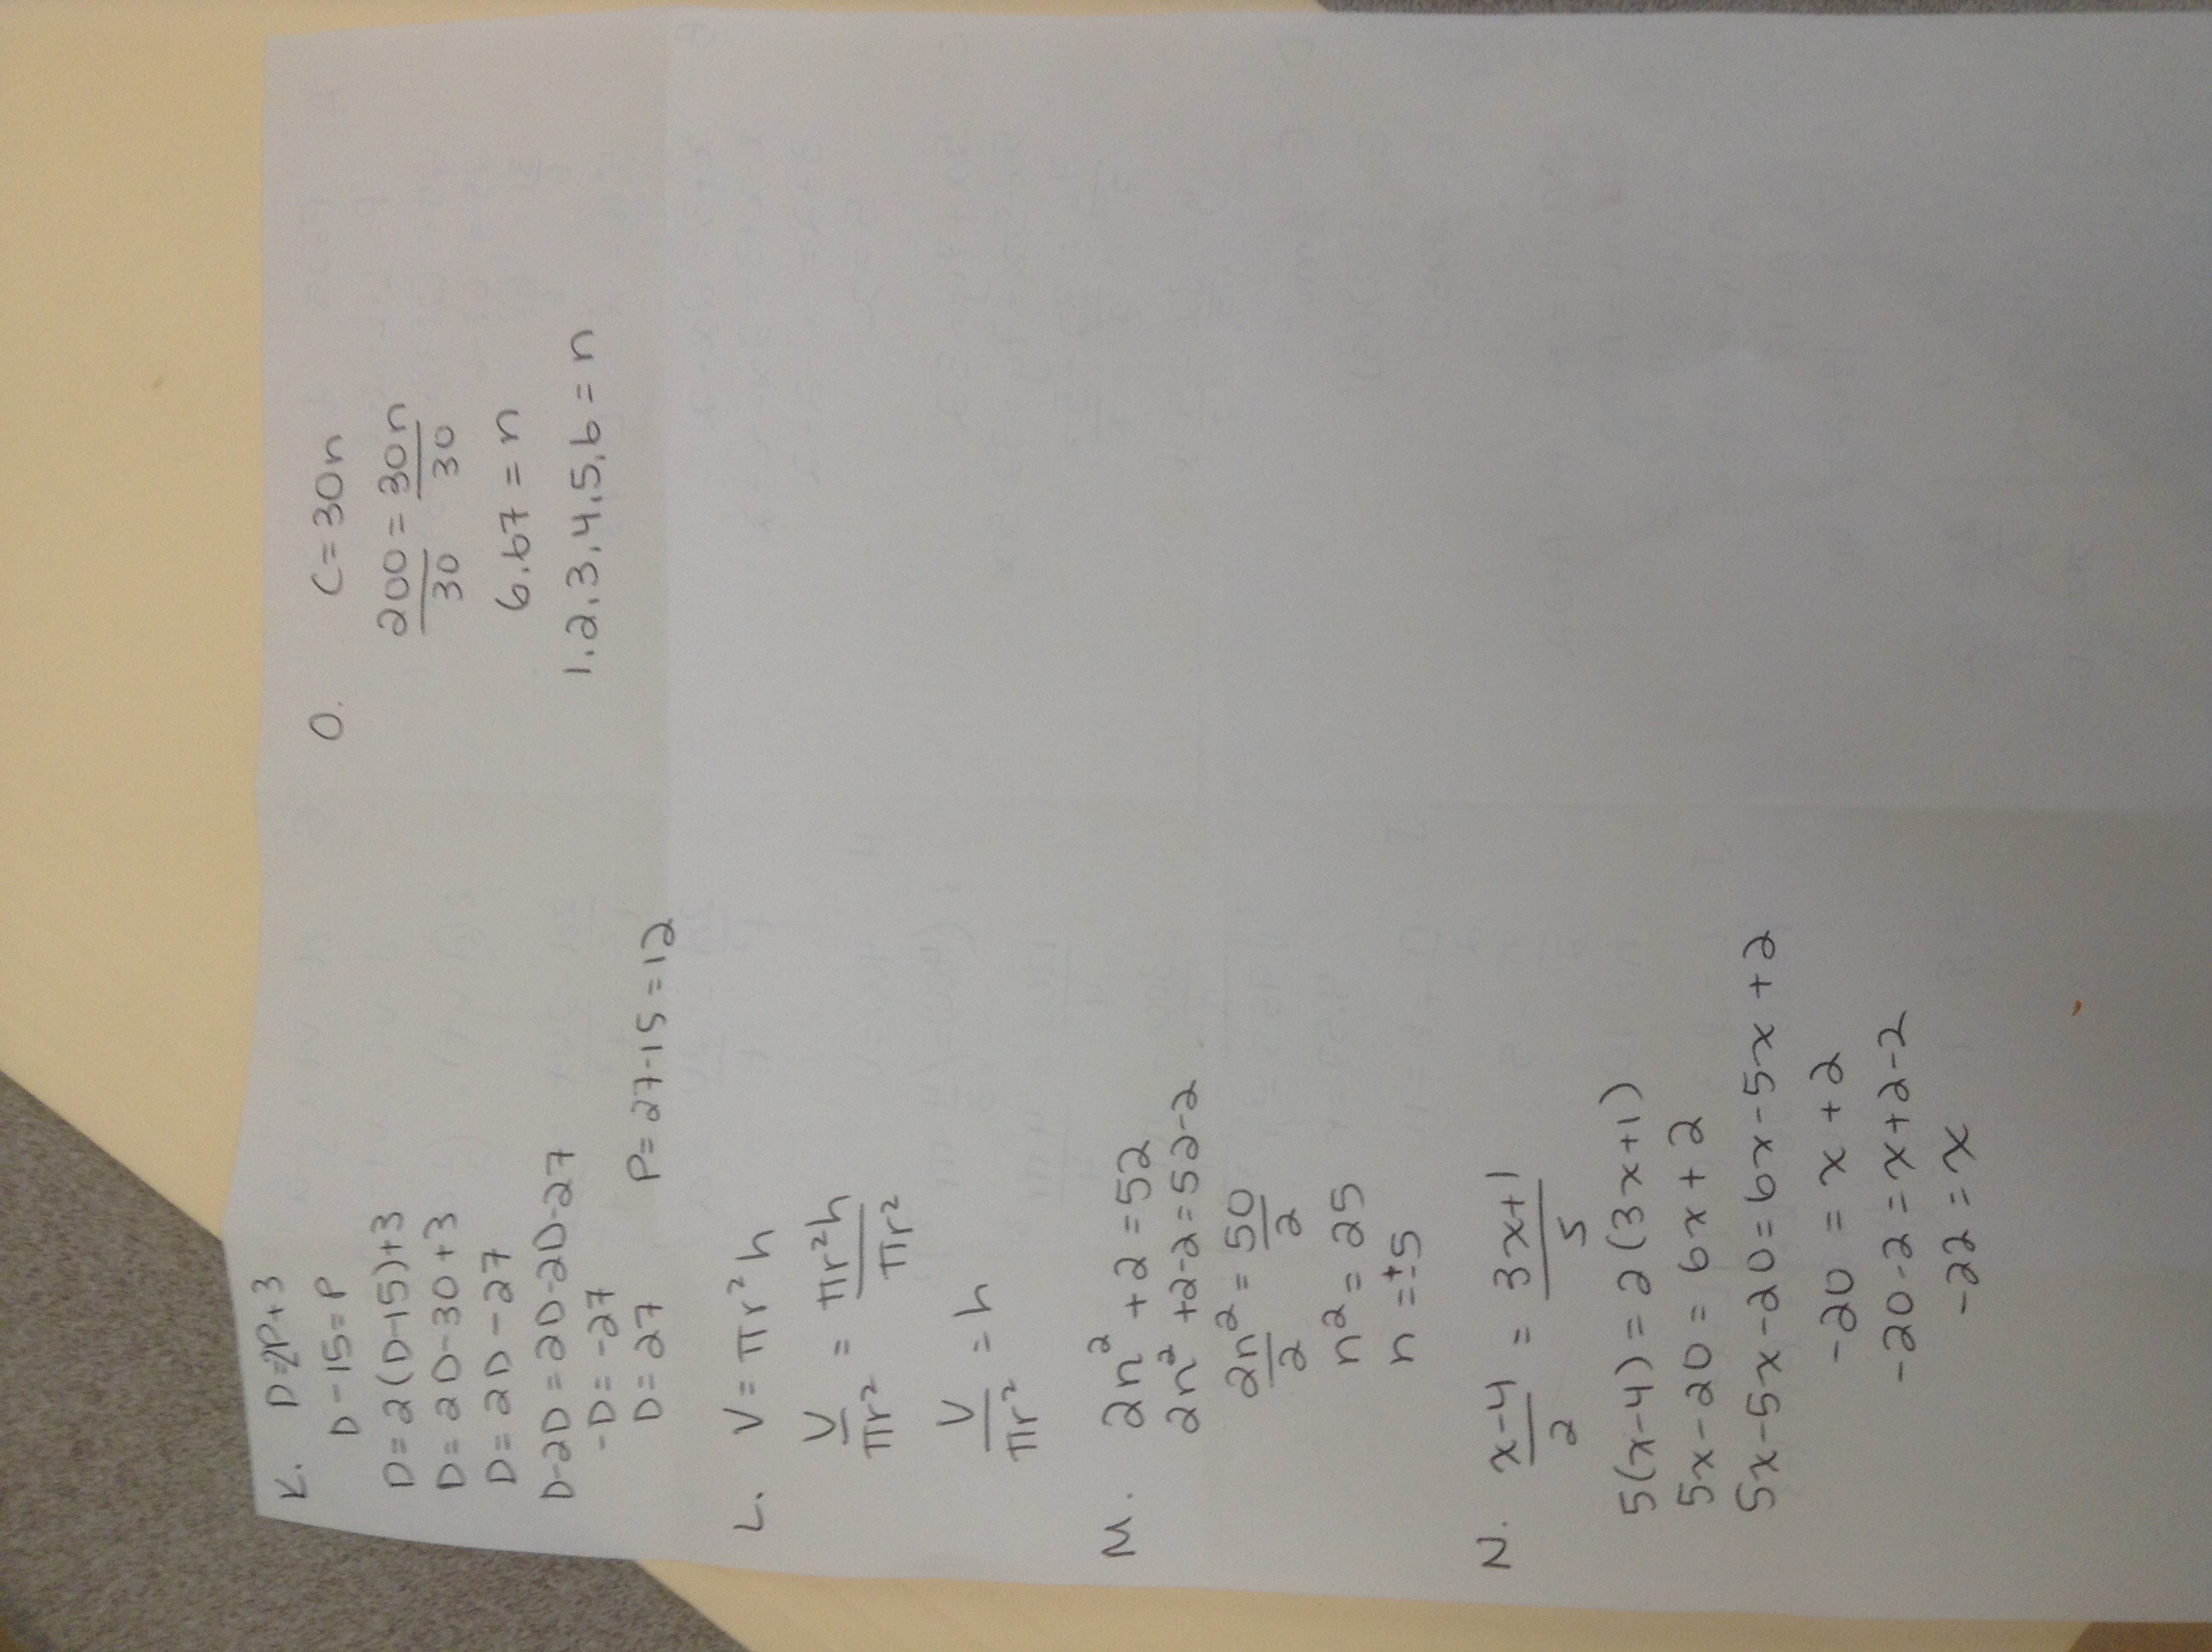 K. D=2P+3
D-15=P
D=2(D-15)+3
D=2D-30+3
D=2D-27
D-2D=2D-2D-27
-D=-27
D=27
P=27-15=12
L. V=πr²h
V/πr² = πr²h/πr²
V/πr² = h
M. 2n²+2=52
2n²+2-2=52-2
2n²/2 = 50/2
n²=25
n=±5
N. x-4/2 = 3x+1/5
5(x-4)=2(3x+1)
5x-20=6x+2
5x-5x-20=6x-5x+2
-20=x+2
-20-2=x+2-2
-22=x
O. C=30n
200/30 = 30n/30
6.67=n
1,2,3,4,5,6=n